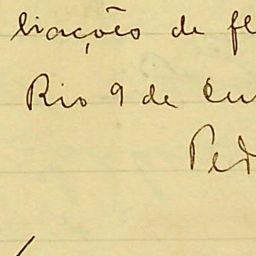 liações de fl
Rio 9 de Ou
Ped